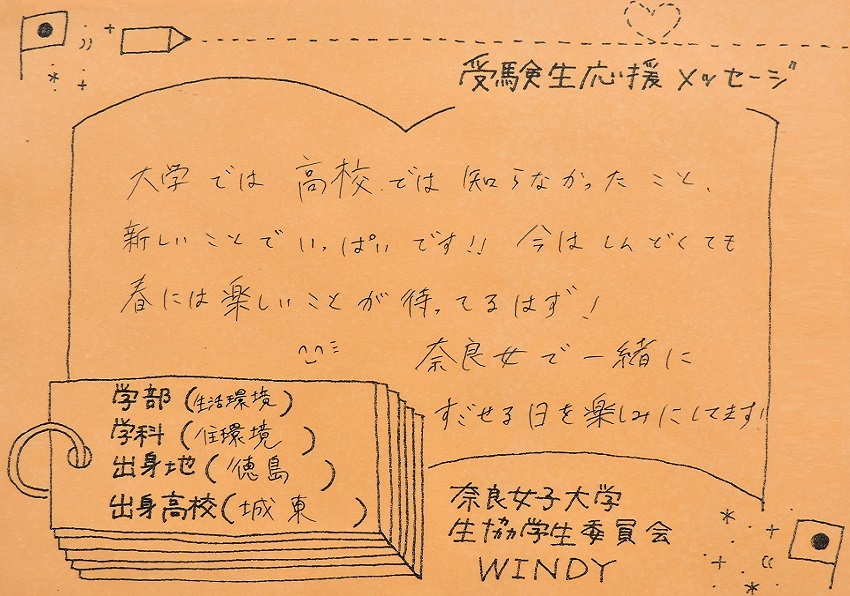 受験生応援メッセージ
大学では 高校では 知らなかったこと、
新しいことでいっぱいです!! 今はしんどくても
春には楽しいことが待ってるはず!
奈良女で一緒に
すごせる日を楽しみにしてます!
学部(生活環境)
学科(住環境)
出身地(徳島)
出身高校(城東)
奈良女子大学
生協学生委員会
WINDY